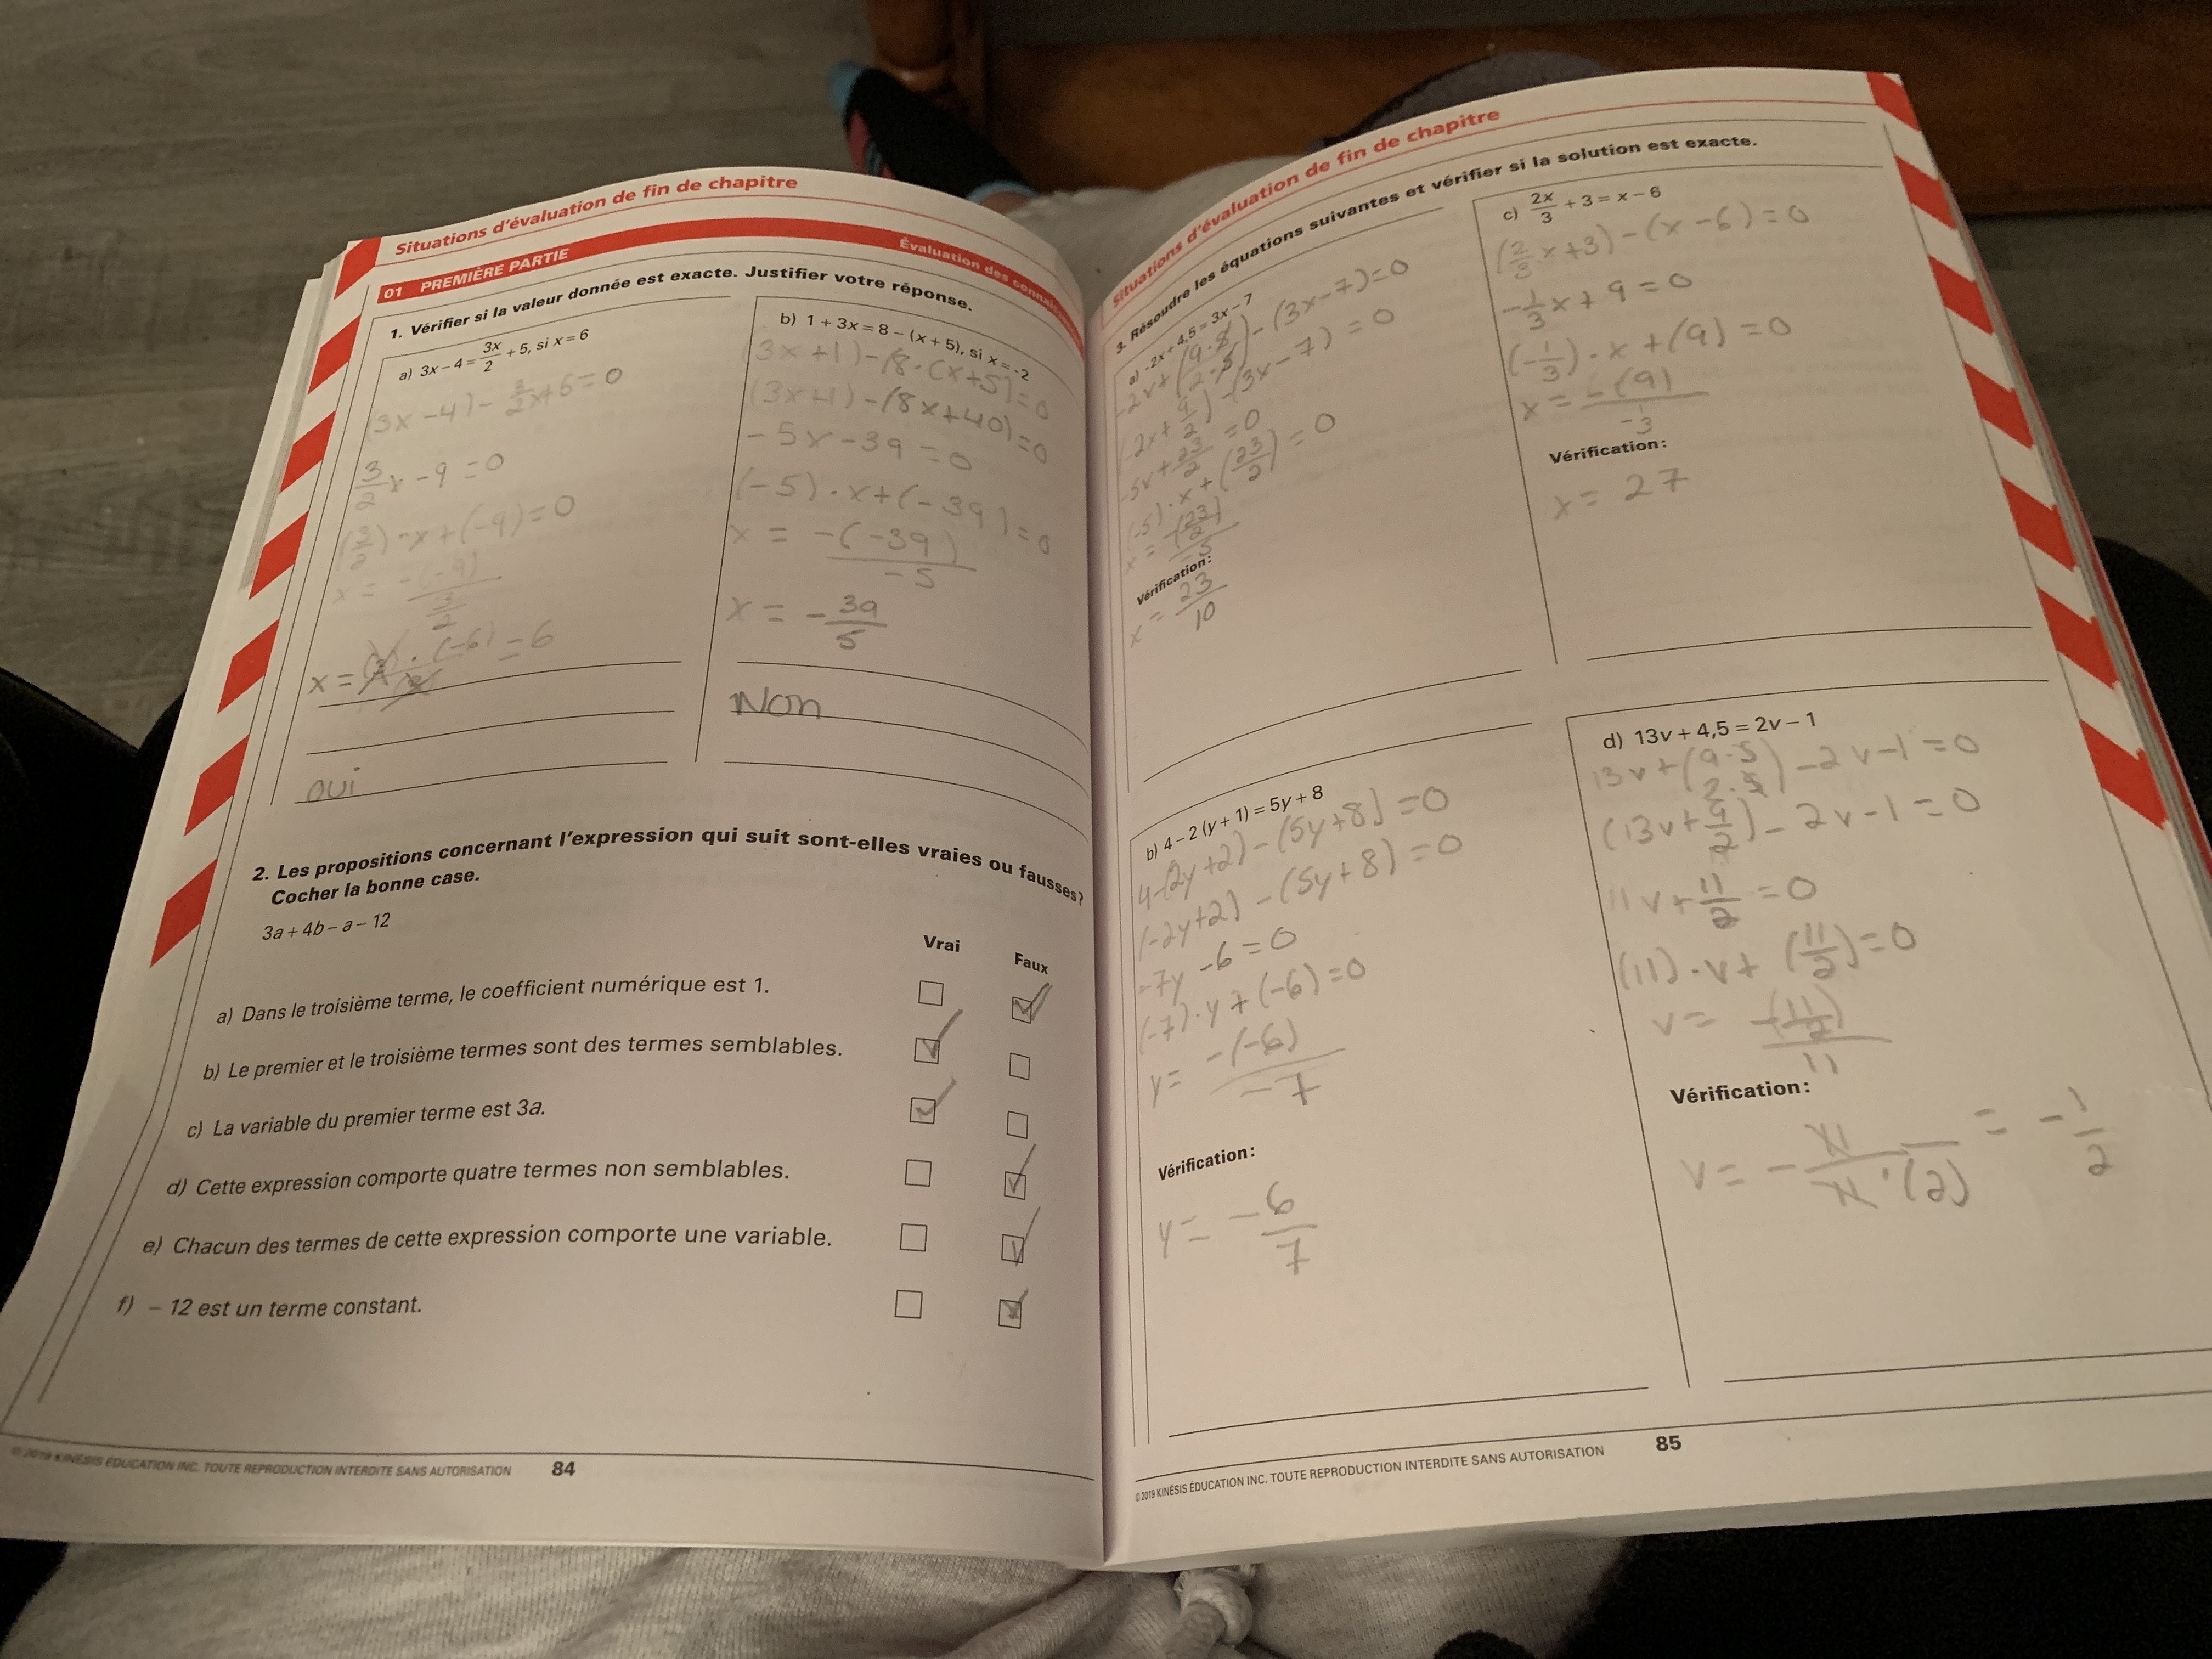 Situations d'évaluation de fin de chapitre
01 PREMIÈRE PARTIE
Évaluation des
1. Vérifier si la valeur donnée est exacte. Justifier votre réponse.
a) 3x – 4 = 3x/2 + 5, si x = 6
(3x - 4) - 3/2x + 5 = 0
3/2 x - 9 = 0
(3/2) · x + (-9) = 0
x = -(-9) / 3/2
x = · (-6) = 6
oui
b) 1 + 3x = 8 – (x + 5), si x = -2
(3x + 1) - (8 · (x + 5) = 0
(3x + 1) - (8x + 40) = 0
- 5x - 39 = 0
(-5) · x + (-39) = 0
x = -(-39) / -5
x = - 39/5
Non
2. Les propositions concernant l'expression qui suit sont-elles vraies ou fausses?
Cocher la bonne case.
3a + 4b – a – 12
Vrai Faux
a) Dans le troisième terme, le coefficient numérique est 1.
b) Le premier et le troisième termes sont des termes semblables.
c) La variable du premier terme est 3a.
d) Cette expression comporte quatre termes non semblables.
e) Chacun des termes de cette expression comporte une variable.
f) – 12 est un terme constant.
© 2019 KINÉSIS ÉDUCATION INC. TOUTE REPRODUCTION INTERDITE SANS AUTORISATION 84
Situations d'évaluation de fin de chapitre
3. Résoudre les équations suivantes et vérifier si la solution est exacte.
a) -2x + 4,5 = 3x – 7
-2x + (9·5 / 2·5) - (3x - 7) = 0
(-2x + 9/2) - (3x - 7) = 0
-5x + 23/2 = 0
(-5) · x + (23/2) = 0
x = -(23/2) / -5
Vérification:
x = 23/10
c) 2x/3 + 3 = x – 6
(2/3 · x + 3) - (x - 6) = 0
-1/3 x + 9 = 0
(-1/3) · x + (9) = 0
x = -(9) / -1/3
Vérification:
x = 27
b) 4 – 2 (y + 1) = 5y + 8
4 - (2y + 2) - (5y + 8) = 0
(-2y + 2) - (5y + 8) = 0
-7y - 6 = 0
(-7) · y + (-6) = 0
y = -(-6) / -7
Vérification:
y = - 6/7
d) 13v + 4,5 = 2v – 1
13v + (9·5 / 2·5) - 2v - 1 = 0
(13v + 9/2) - 2v - 1 = 0
11v + 11/2 = 0
(11) · v + (11/2) = 0
v = -(11/2) / 11
Vérification:
v = - 11 / 11 · (2) = - 1/2
© 2019 KINÉSIS ÉDUCATION INC. TOUTE REPRODUCTION INTERDITE SANS AUTORISATION 85